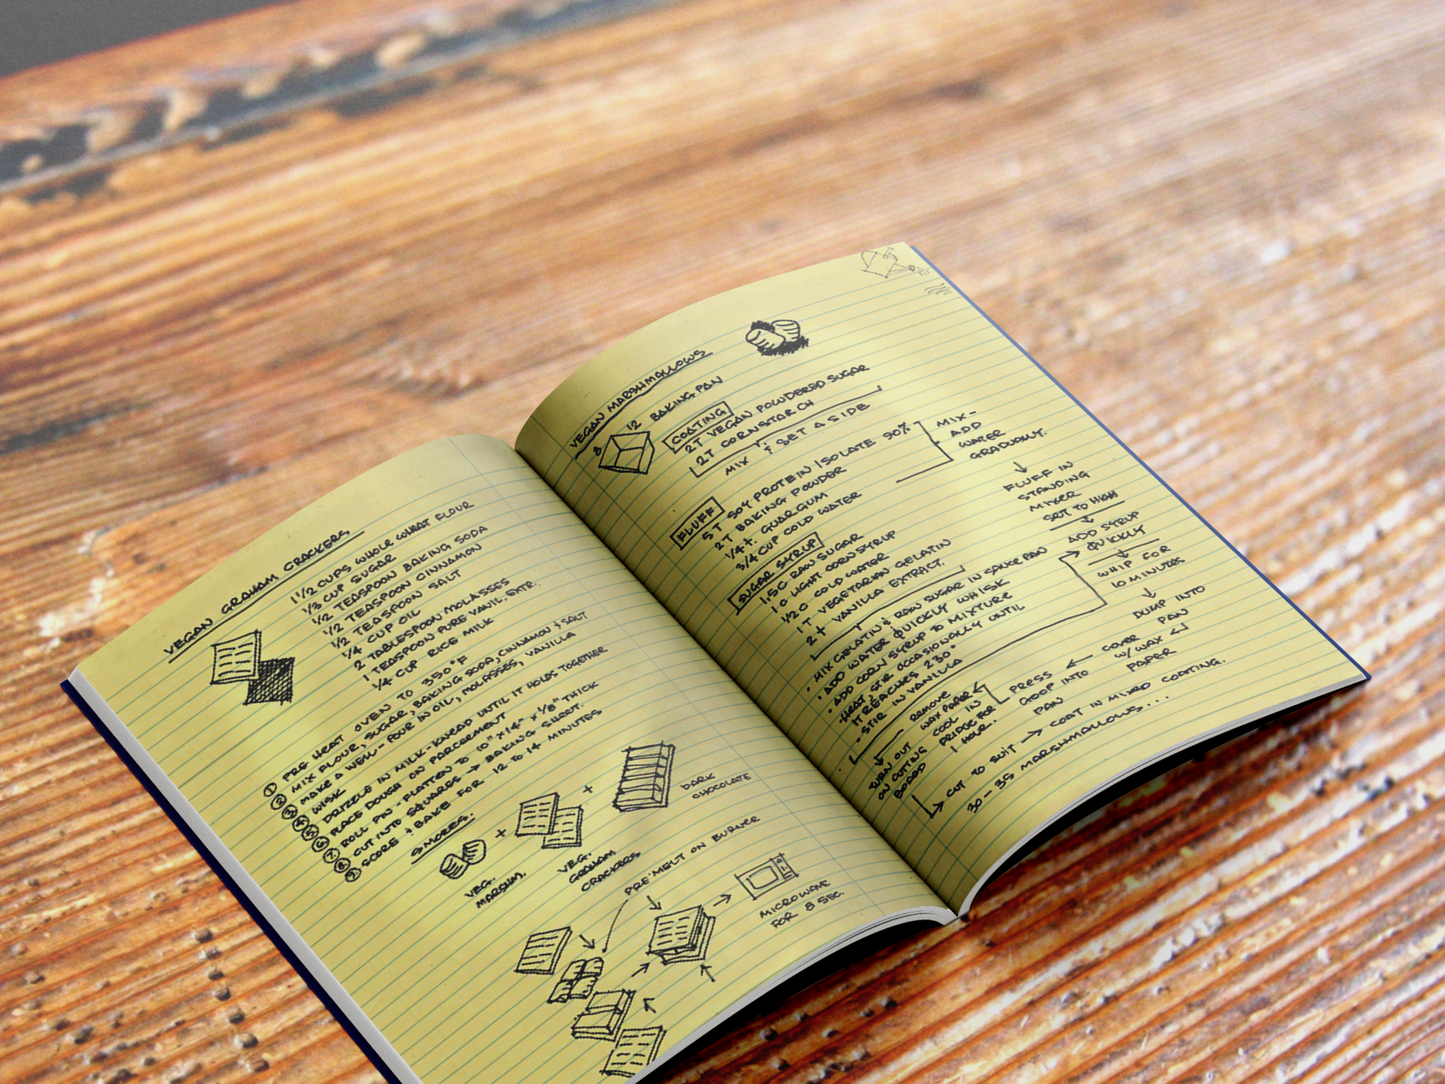 VEGAN GRAHAM CRACKERS
1 1/2 CUPS WHOLE WHEAT FLOUR
1/3 CUP SUGAR
1/2 TEASPOON BAKING SODA
1/2 TEASPOON CINNAMON
1/2 TEASPOON SALT
1/4 CUP OIL
2 TABLESPOON MOLASSES
1 TEASPOON PURE VANIL. EXTR.
1/4 CUP RICE MILK
① PRE HEAT OVEN TO 350°F
② MIX FLOUR, SUGAR, BAKING SODA, CINNAMON & SALT
③ MAKE A WELL - POUR IN OIL, MOLASSES, VANILLA
④ WISK
⑤ DRIZZLE IN MILK - KNEAD UNTIL IT HOLDS TOGETHER
⑥ PLACE DOUGH ON PARCHMENT
⑦ ROLL PIN - FLATTEN TO 10" x 14" x 1/8" THICK
⑧ CUT INTO SQUARES → BAKING SHEET.
⑨ SCORE & BAKE FOR 12 TO 14 MINUTES
SMORES:
VEG. MARSHM.
+
VEG. GRAHAM CRACKERS
+
DARK CHOCOLATE
PRE MELT ON BURNER
MICROWAVE
FOR 8 SEC.
VEGAN MARSHMALLOWS
8
12 BAKING PAN
COATING
2T VEGAN POWDERED SUGAR
2T CORNSTARCH
MIX & SET A SIDE
FLUFF
5T SOY PROTEIN ISOLATE 90%
2T BAKING POWDER
1/4 t. GUARGUM
3/4 CUP COLD WATER
MIX -
ADD
WATER
GRADUALLY.
FLUFF IN
STANDING
MIXER
SET TO HIGH
ADD SYRUP
QUICKLY
WHIP FOR
10 MINUTES
DUMP INTO
PAN
COVER
W/ WAX
PAPER
PRESS
GOOP INTO
PAN
SUGAR SYRUP
1.5C RAW SUGAR
1 C LIGHT CORN SYRUP
1/2 C COLD WATER
1 T VEGETARIAN GELATIN
2 t VANILLA EXTRACT.
• MIX GELATIN & RAW SUGAR IN SAUCE PAN
• ADD WATER QUICKLY WHISK
• ADD CORN SYRUP TO MIXTURE
• HEAT & STIR OCCASIONALLY UNTIL
IT REACHES 230°
• STIR IN VANILLA
REMOVE
WAX PAPER
COOL IN
FRIDGE FOR
1 HOUR.
TURN OUT
ON CUTTING
BOARD
CUT TO SUIT → COAT IN MIXED COATING.
30 - 35 MARSHMALLOWS...